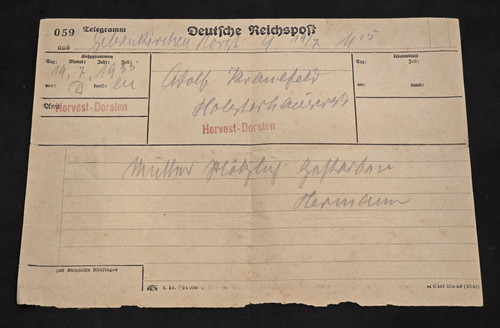 059 Telegramm Deutsche Reichspost
aus Gelsenkirchen Horst 9 19/7 11 15
Aufgenommen
Tag: Monat: Jahr: Zeit:
19. 7. 1935
von: durch:
Amt Hervest-Dorsten
Adolf Kranefeld
Holsterhauserstr
Hervest-Dorsten
Übermittelt
Tag: Zeit:
an: durch:
Mutter Plötzlich Gestorben
Hermann
Für dienstliche Rückfragen